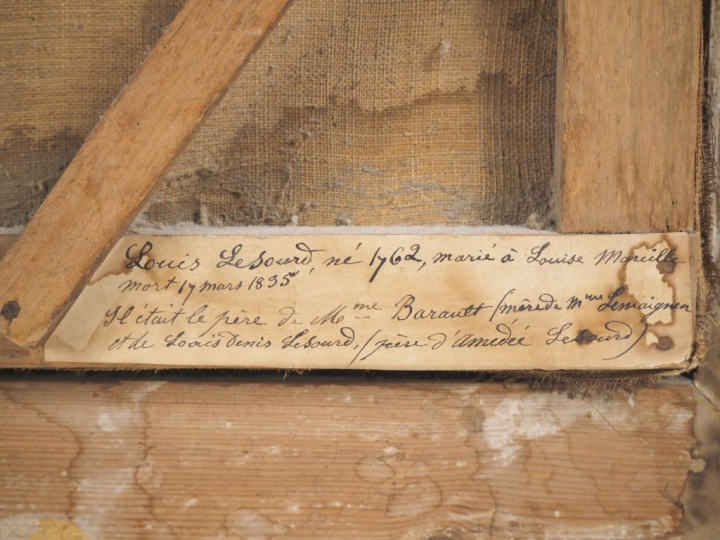 Louis Lesourd, né 1762, marié à Louise Marcille
mort 17 mars 1835
Il était le père de Mme Barault (mère de Mme Lemaignen
et de Louis Denis Lesourd, (père d'Amédée Lesourd)